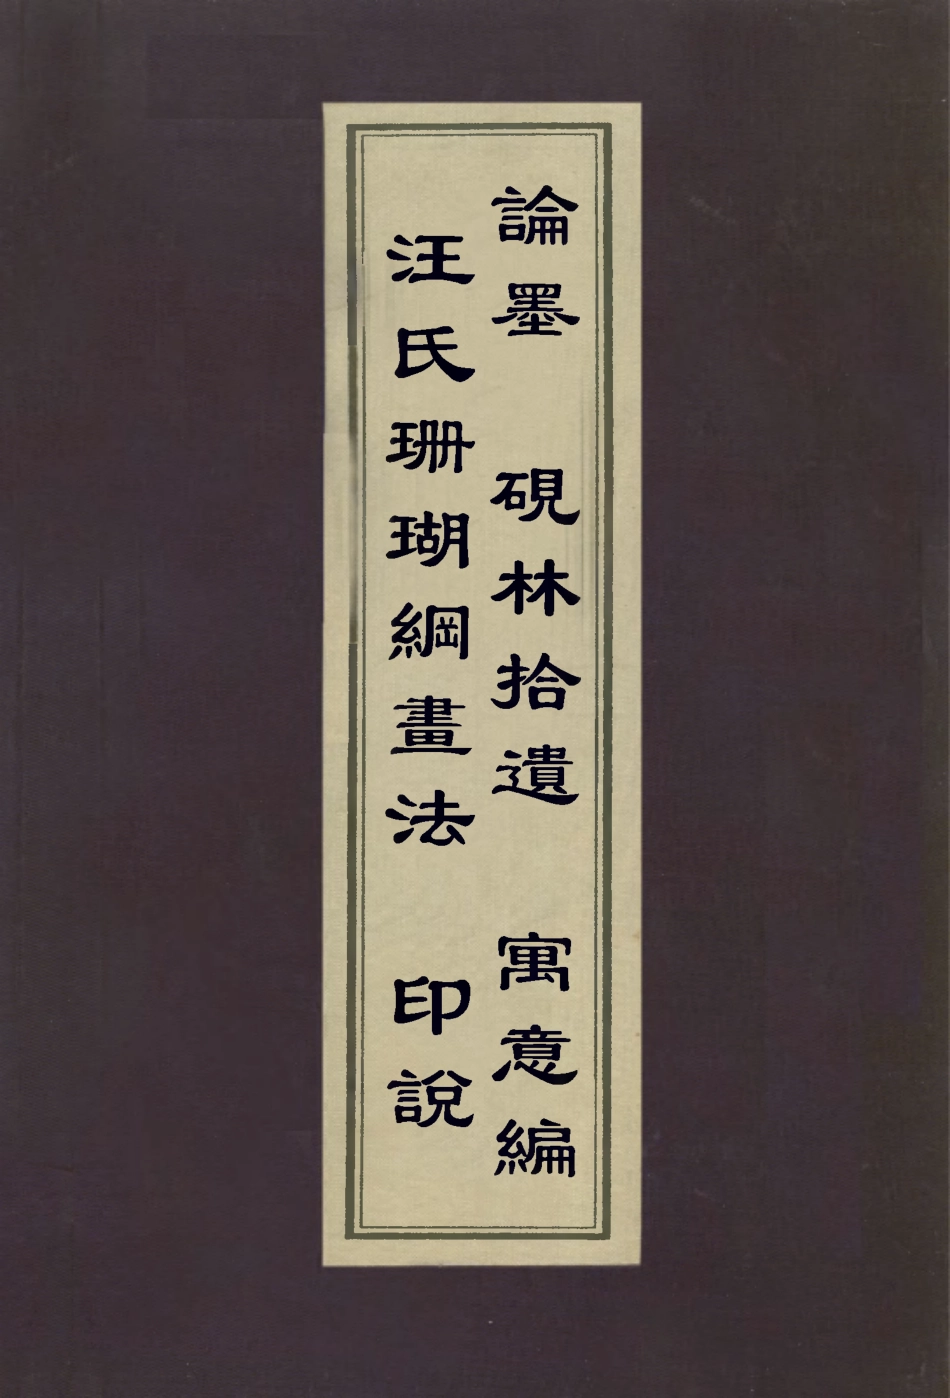 論墨 硯林拾遺 寓意編
汪氏珊瑚綱畫法 印說